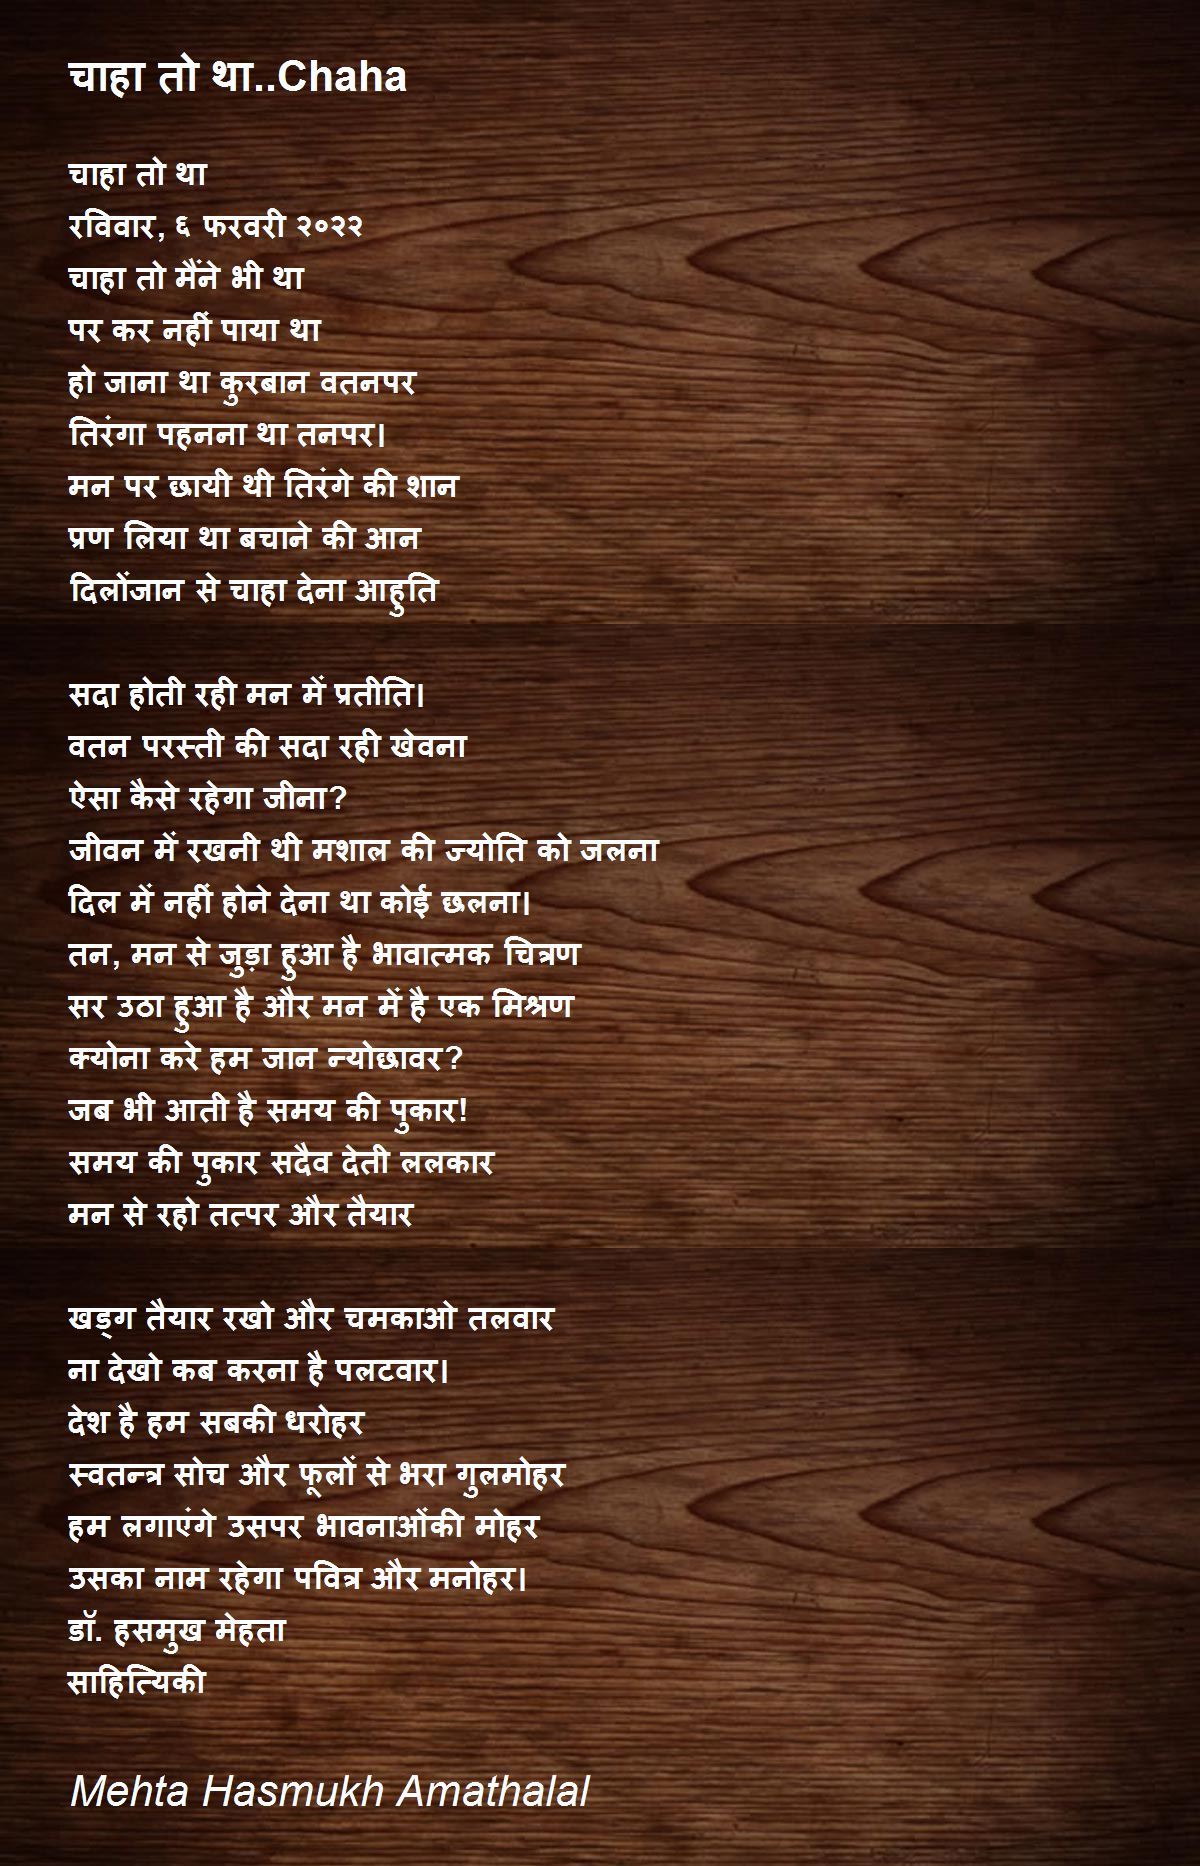 चाहा तो था..Chaha
चाहा तो था
रविवार, ६ फरवरी २०२२
चाहा तो मैंने भी था
पर कर नहीं पाया था
हो जाना था कुरबान वतनपर
तिरंगा पहनना था तनपर।
मन पर छायी थी तिरंगे की शान
प्रण लिया था बचाने की आन
दिलोंजान से चाहा देना आहुति
सदा होती रही मन में प्रतीति।
वतन परस्ती की सदा रही खेवना
ऐसा कैसे रहेगा जीना?
जीवन में रखनी थी मशाल की ज्योति को जलना
दिल में नहीं होने देना था कोई छलना।
तन, मन से जुड़ा हुआ है भावात्मक चित्रण
सर उठा हुआ है और मन में है एक मिश्रण
क्योना करे हम जान न्योछावर?
जब भी आती है समय की पुकार!
समय की पुकार सदैव देती ललकार
मन से रहो तत्पर और तैयार
खड्ग तैयार रखो और चमकाओ तलवार
ना देखो कब करना है पलटवार।
देश है हम सबकी धरोहर
स्वतन्त्र सोच और फूलों से भरा गुलमोहर
हम लगाएंगे उसपर भावनाओंकी मोहर
उसका नाम रहेगा पवित्र और मनोहर।
डॉ. हसमुख मेहता
साहित्यिकी
Mehta Hasmukh Amathalal